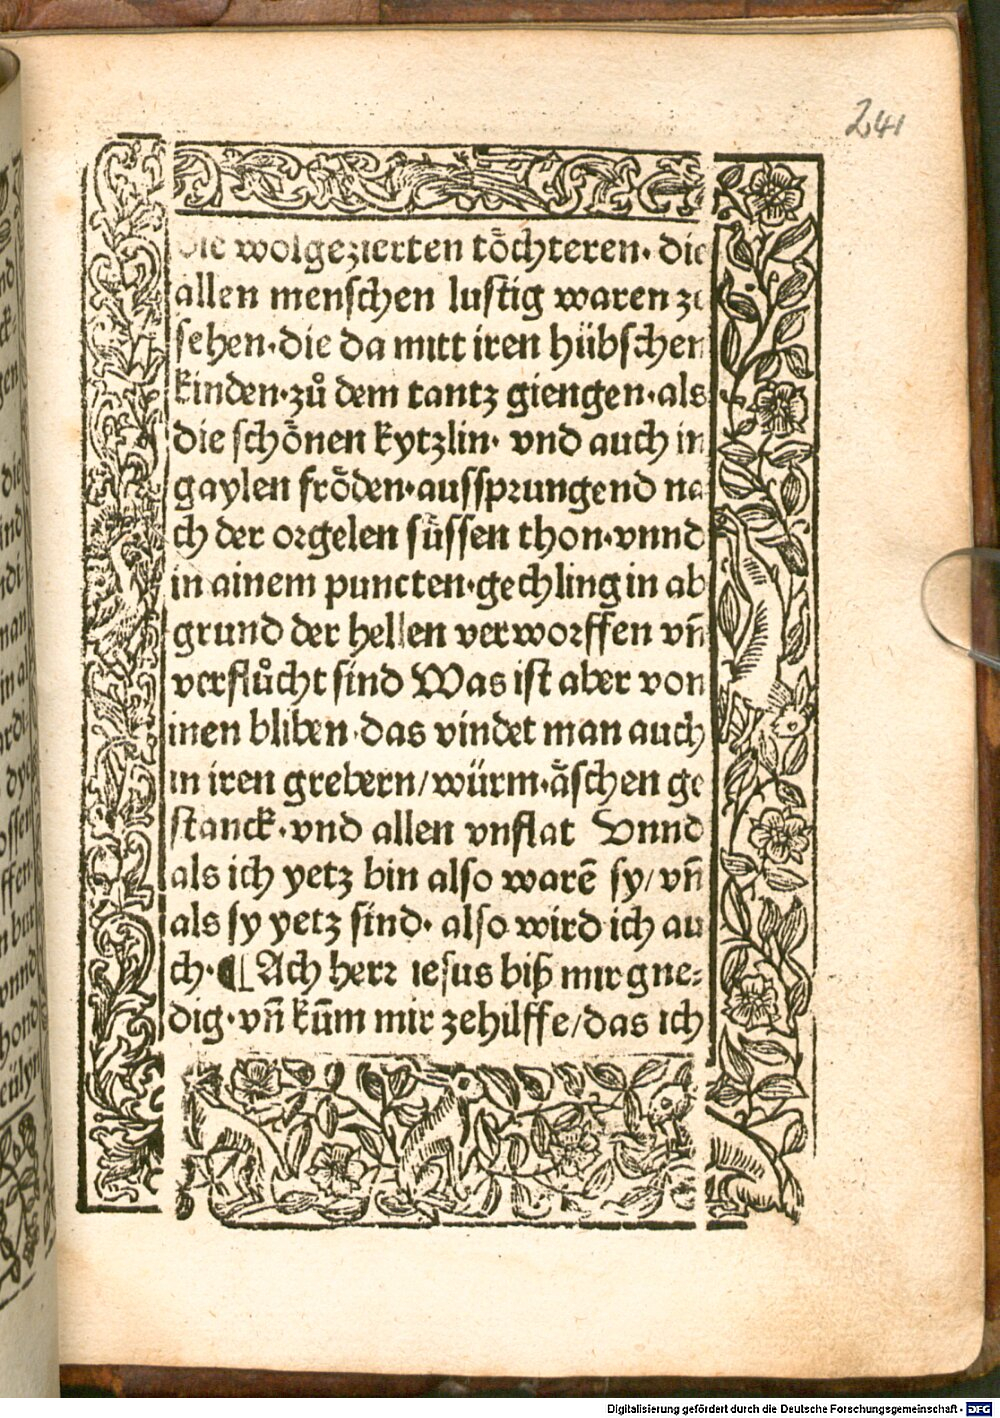 241
Die wolgezierten toͤchteren· die
allen menschen lustig waren ze
sehen·die da mitt iren hübschen
kinden·zů dem tantz giengen·als
die schoͤnen kytzlin· vnd auch in
gaylen froͤden·aussprungend na
ch der orgelen süssen thon·vnnd
in ainem puncten·gechling in ab
grund der hellen verworffen vn̄
verflůcht sind Was ist aber von
inen bliben·das vindet man auch
in iren grebern/würm·aͤschen ge
stanck·vnd allen vnflat Vnnd
als ich yetz bin also warē sy/vn̄
als sy yetz sind· also wird ich au
ch·¶Ach herr iesus biß mir gne⸗
dig·vn̄ kūm mir zehilffe/das ich
Digitalisierung gefördert durch die Deutsche Forschungsgemeinschaft - DFG